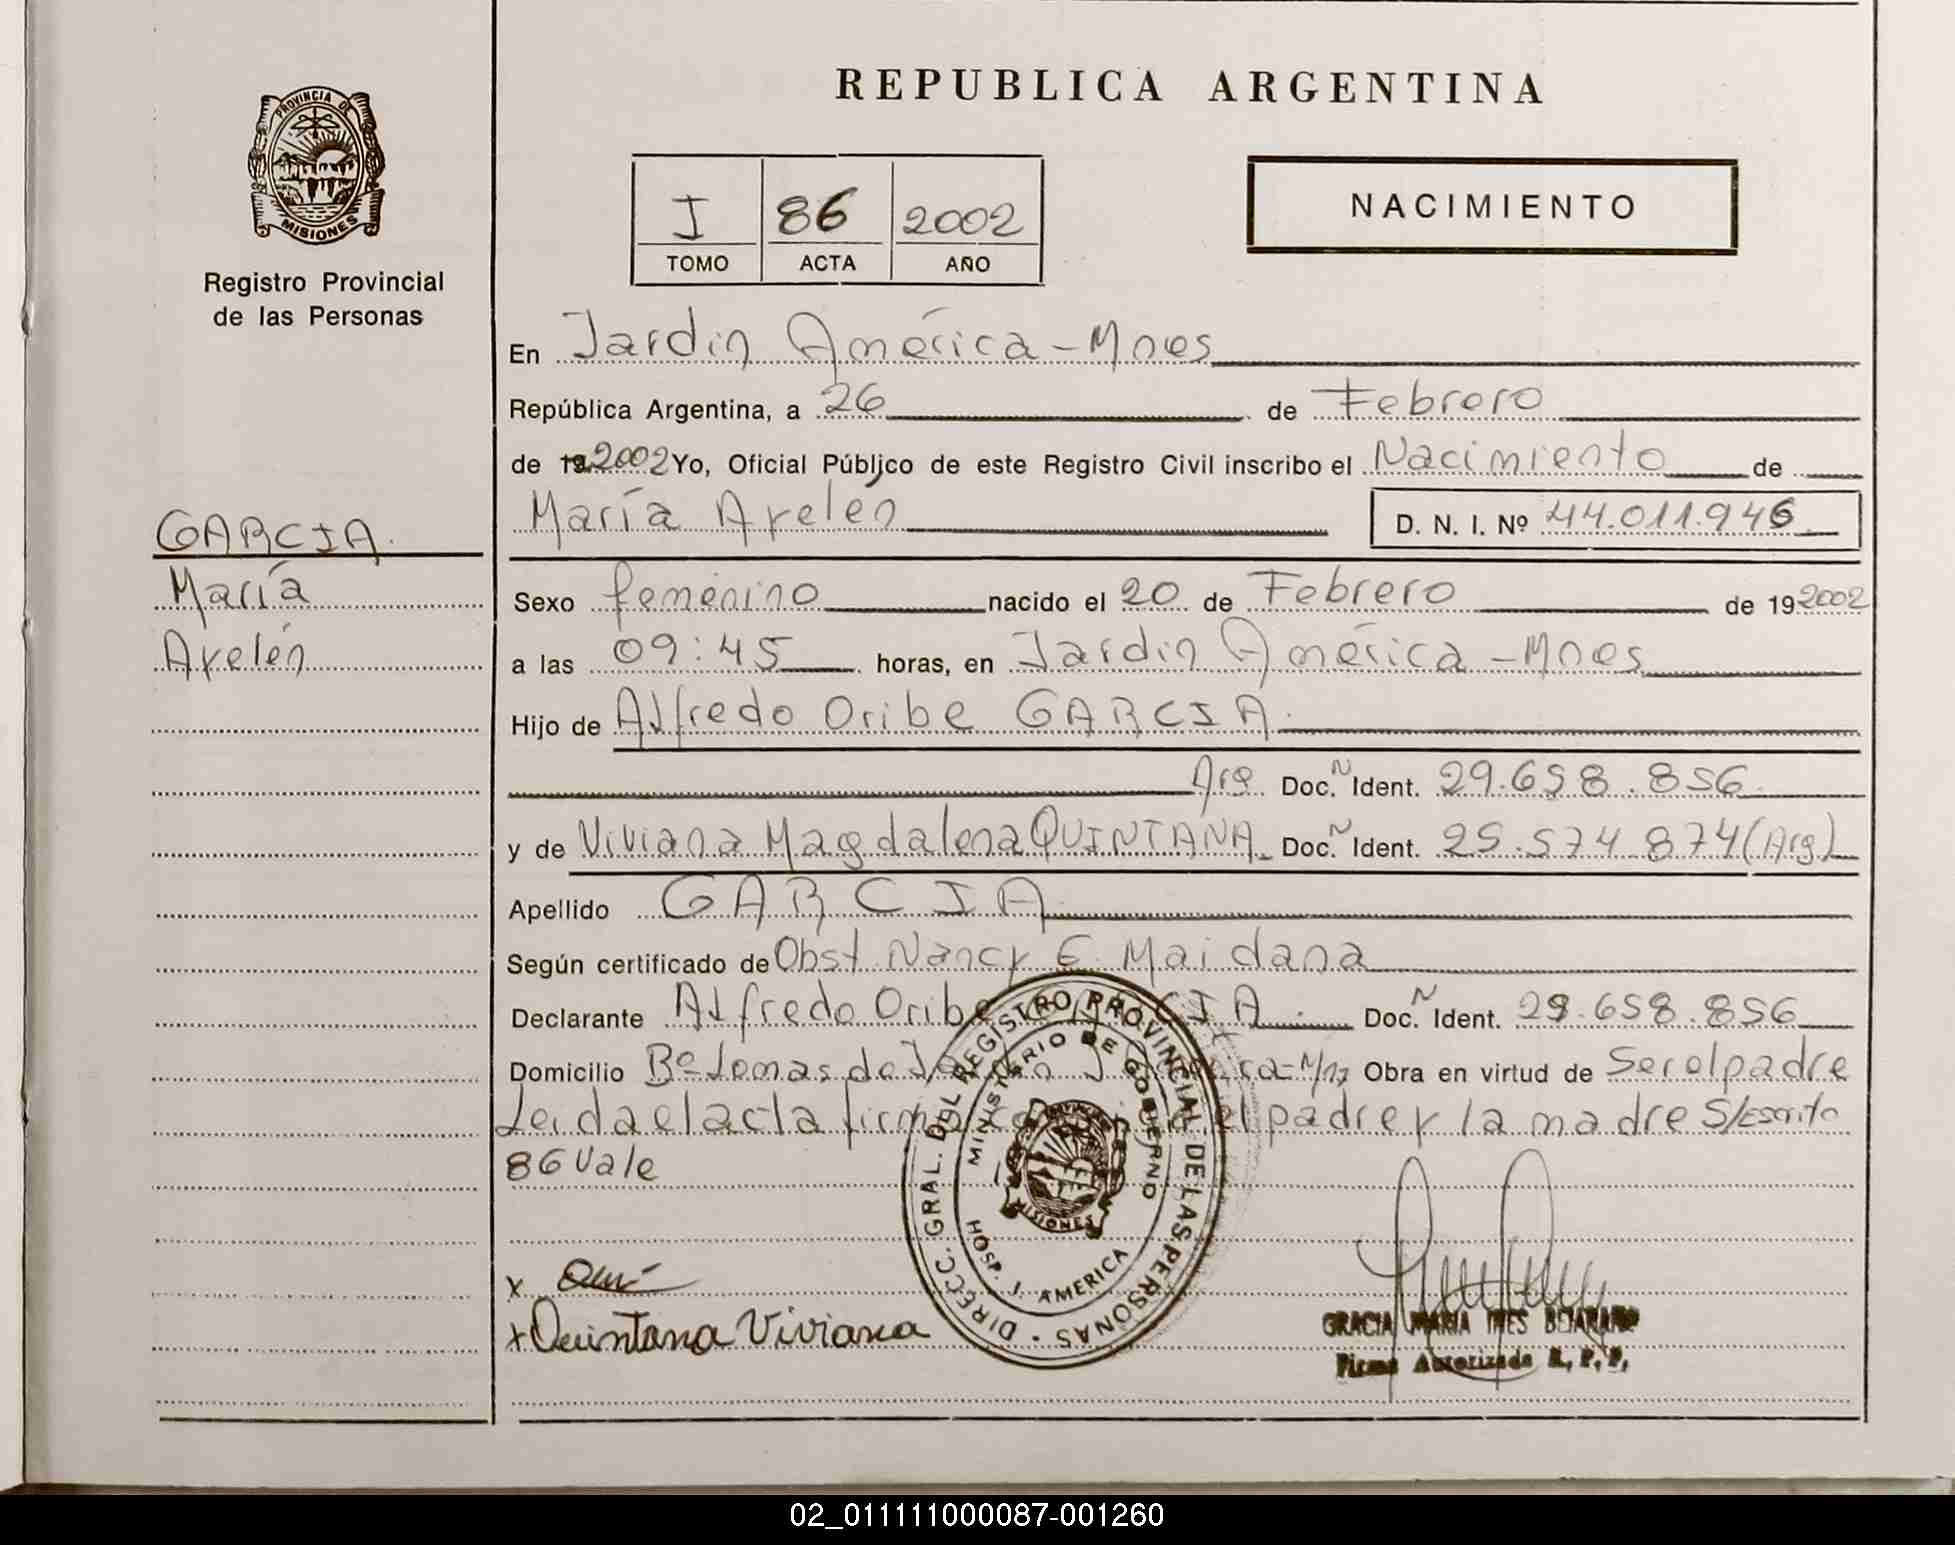 REPUBLICA ARGENTINA
PROVINCIA DE MISIONES
Registro Provincial
de las Personas
I 86 2002
TOMO ACTA AÑO
NACIMIENTO
En Jardin América - Mnes
República Argentina, a 26 de Febrero
de 19 2002 Yo, Oficial Público de este Registro Civil inscribo el Nacimiento de
María Ayelén D. N. I. Nº 44.011.946
GARCIA.
María
Ayelén
Sexo femenino nacido el 20 de Febrero de 19 2002
a las 09:45 horas, en Jardin América - Mnes
Hijo de Alfredo Oribe GARCIA.
Arg. Doc. N Ident. 29.658.856
y de Viviana Magdalena QUINTANA Doc. N Ident. 25.574 874 (Arg)
Apellido GARCIA
Según certificado de Obst Nancy E Maidana
Declarante Alfredo Oribe GARCIA. Doc. N Ident. 29.658.856
Domicilio Bº Lomas de Jardin Obra en virtud de Ser el padre
Leida el acta firman el padre y la madre S/Escrito
86 Vale
DIRECC. GRAL. DEL REGISTRO PROVINCIAL DE LAS PERSONAS
MINISTERIO DE GOBIERNO
MISIONES
HOSP. J. AMERICA
x
x Quintana Viviana
GRACIA MARIA INES BEJARANO
Firma Autorizada R. P. P.
02_011111000087-001260